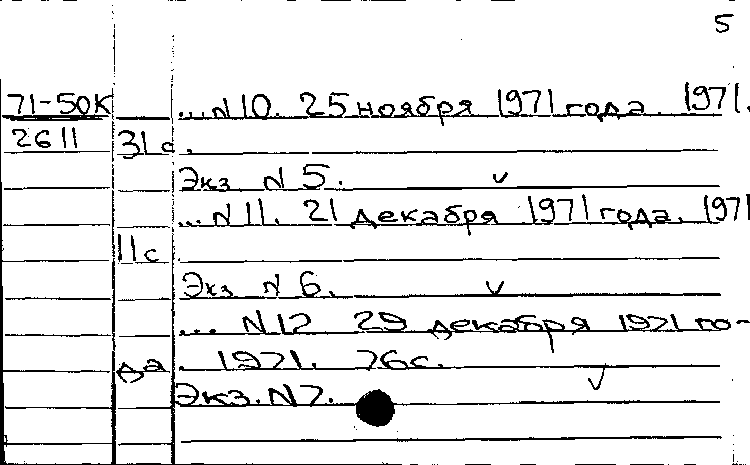 5
71-50К ...N10. 25 ноября 1971 года. 1971.
2611 31 с.
Экз N 5. ✓
...N11. 21 декабря 1971 года. 1971
11 с
Экз N 6. ✓
... N12 29 декабря 1971 го-
да. 1971. 76с. ✓
Экз. N7.